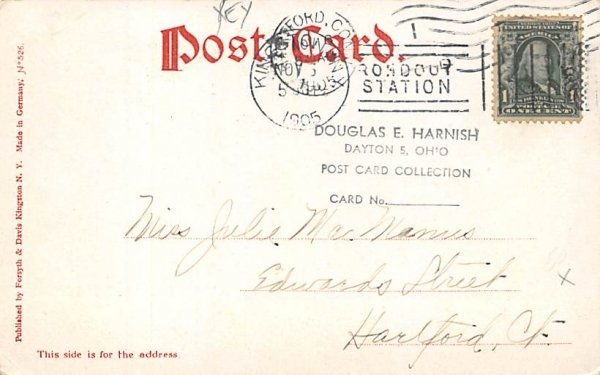 KEY
Post Card.
KINGSTON
HARTFORD, CONN.
NOV
1905
RONDOUT
STATION
UNITED STATES OF AMERICA
ONE CENT
DOUGLAS E. HARNISH
DAYTON 5, OHIO
POST CARD COLLECTION
CARD No.
Miss Julie MacManus
Edwards Street
Hartford, Ct.
x
This side is for the address.
Published by Forsyth & Davis Kingston N. Y. Made in Germany. No 526.